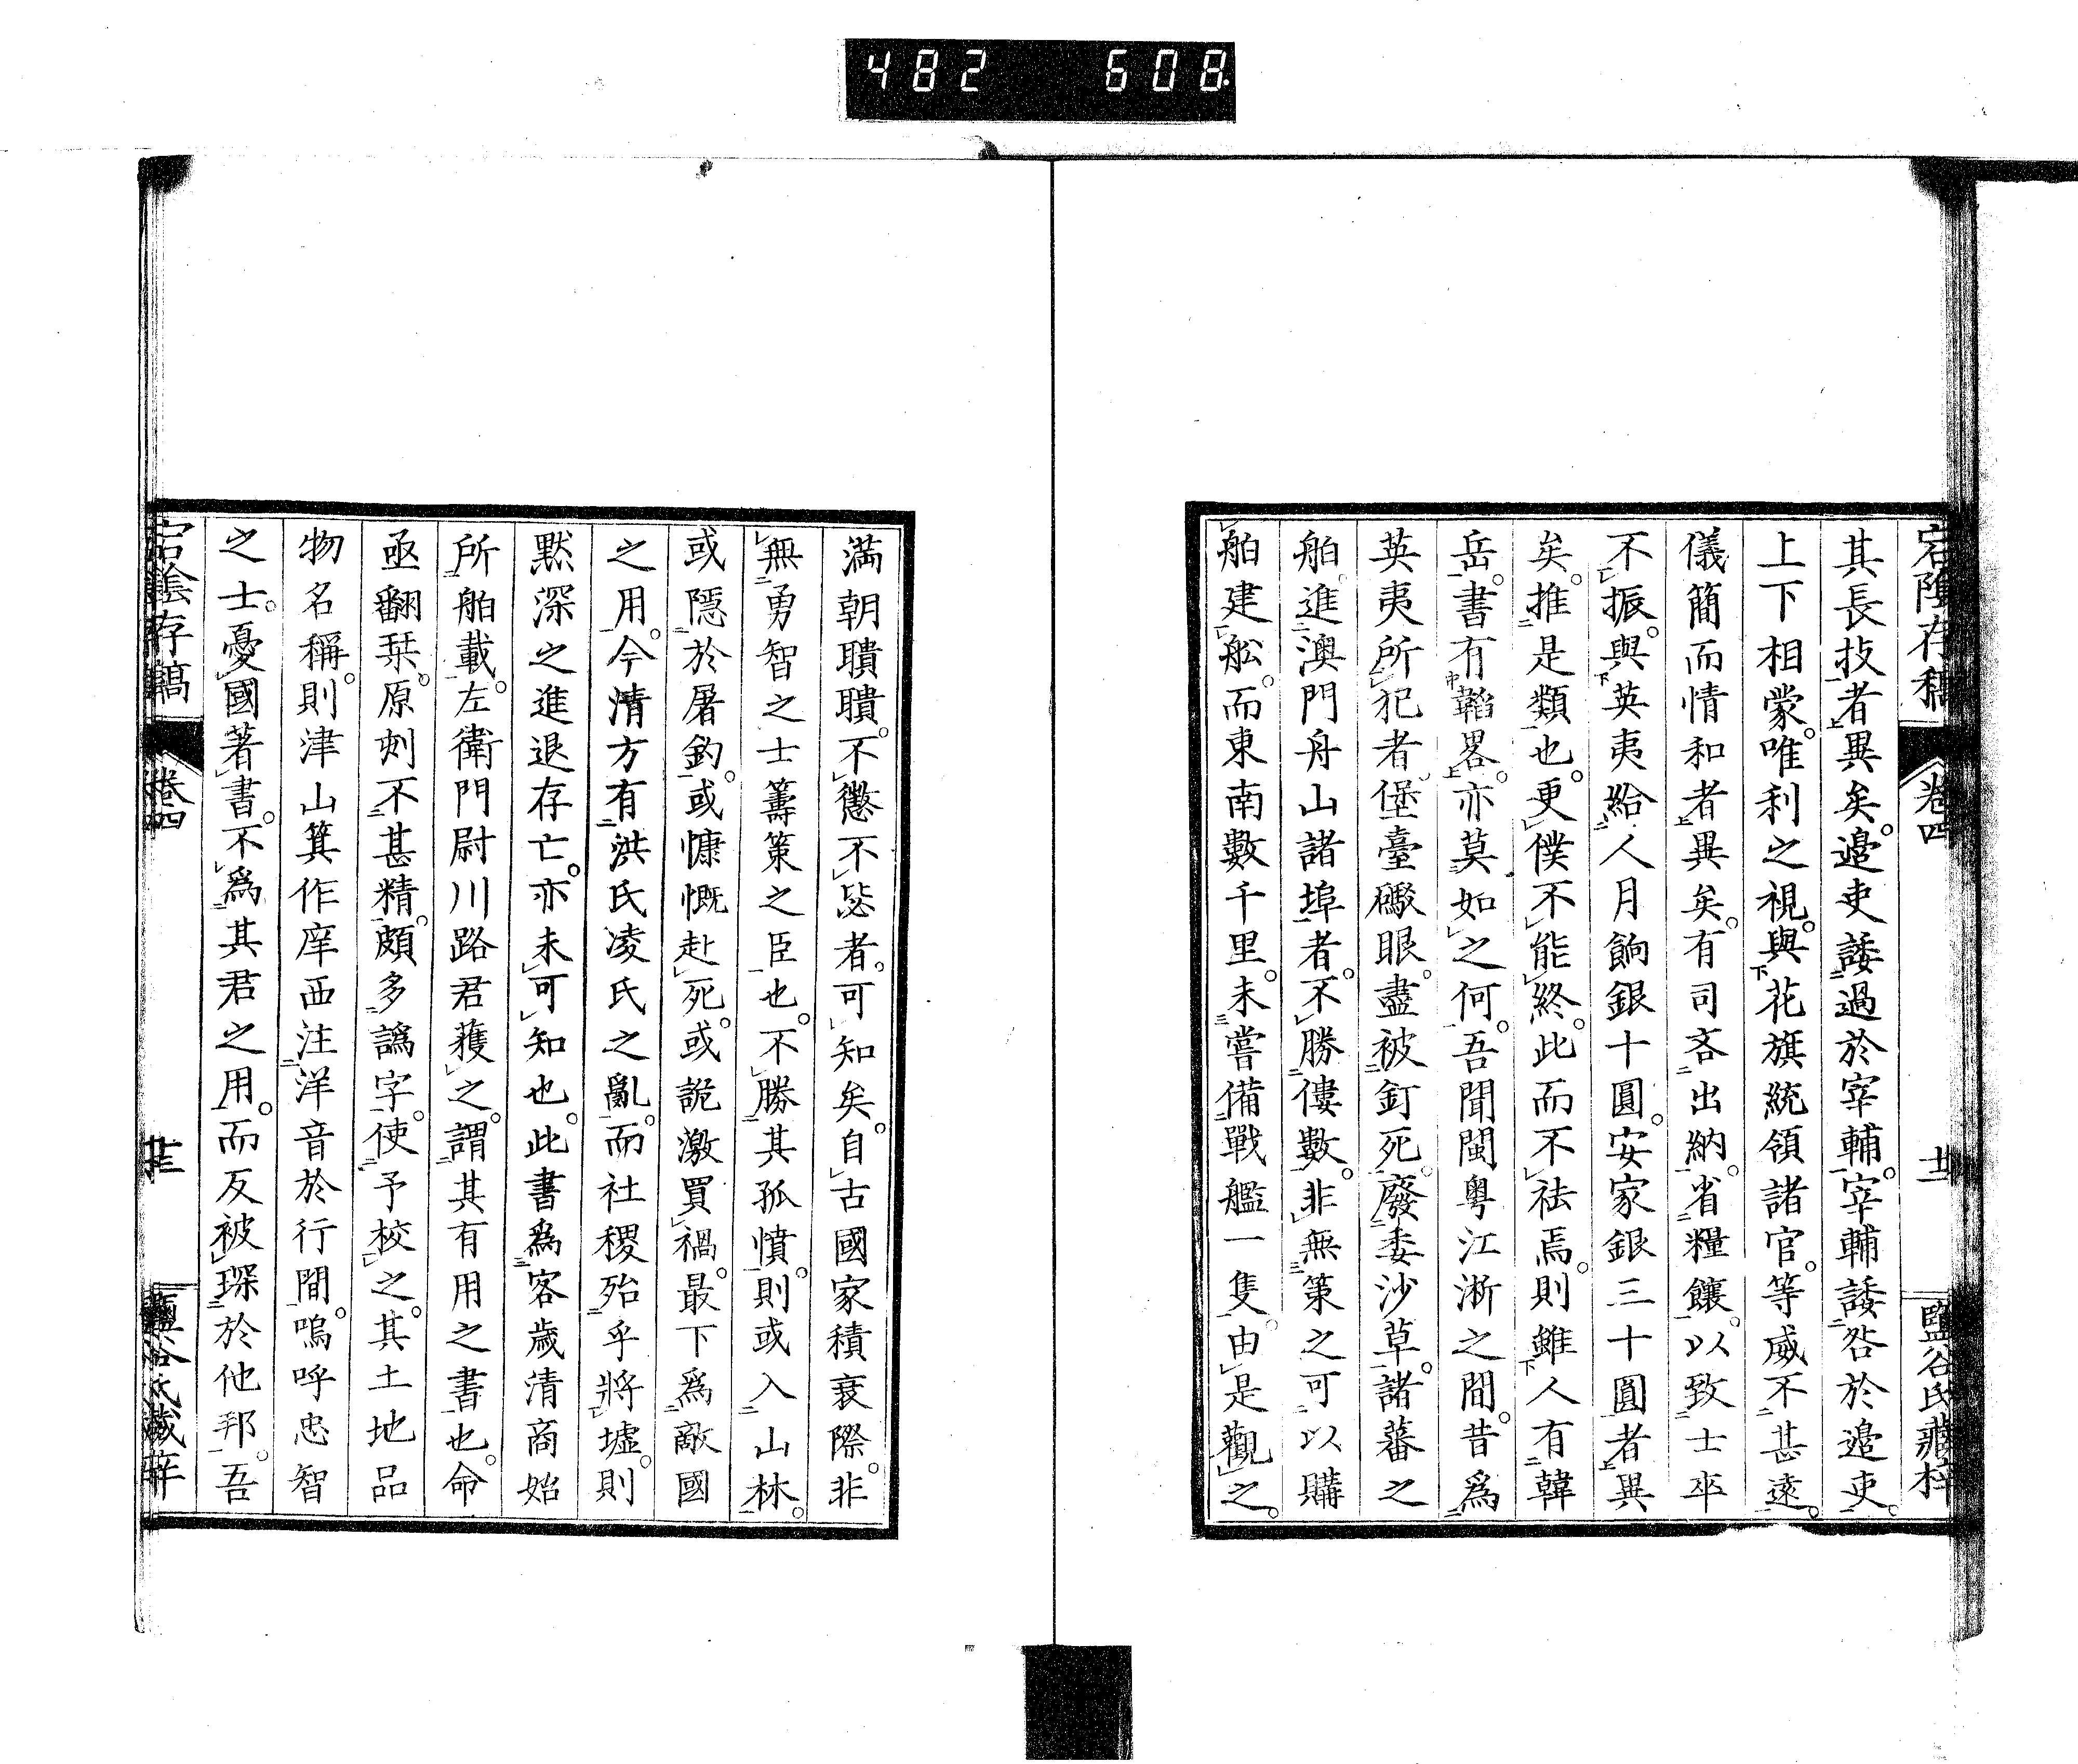 482 608
宕陰存稿 卷四 廿二 鹽谷氏藏梓
其長技者異矣。邉吏諉過於宰輔。宰輔諉咎於邉吏。
上下相蒙。唯利之視。與花旗統領諸官。等威不甚遠。
儀簡而情和者異矣。有司吝出納。省糧饟。以致士卒
不振。與英夷給人月餉銀十圓。安家銀三十圓者異
矣。推是類也。更僕不能終。此而不祛焉。則雖人有韓
岳。書有韜畧。亦莫如之何。吾聞閩粤江淅之間。昔爲
英夷所犯者。堡臺礮眼。盡被釘死。廢委沙草。諸蕃之
舶。進澳門舟山諸埠者。不勝僂數。非無策之可以購
舶建舩。而東南數千里。未嘗備戰艦一隻。由是觀之。
滿朝聵聵。不懲不毖者。可知矣。自古國家積衰際。非
無勇智之士籌策之臣也。不勝其孤憤。則或入山林。
或隱於屠釣。或慷慨赴死。或詭激買禍。最下爲敵國
之用。今清方有洪氏凌氏之亂。而社稷殆乎將墟。則
默深之進退存亡。亦未可知也。此書爲客歲清商始
所舶載。左衛門尉川路君獲之。謂其有用之書也。命
亟翻栞。原刋不甚精。頗多譌字。使予校之。其土地品
物名稱。則津山箕作庠西注洋音於行間。嗚呼忠智
之士。憂國著書。不爲其君之用。而反被琛於他邦。吾
宕陰存稿 卷四 廿三 鹽谷氏藏梓